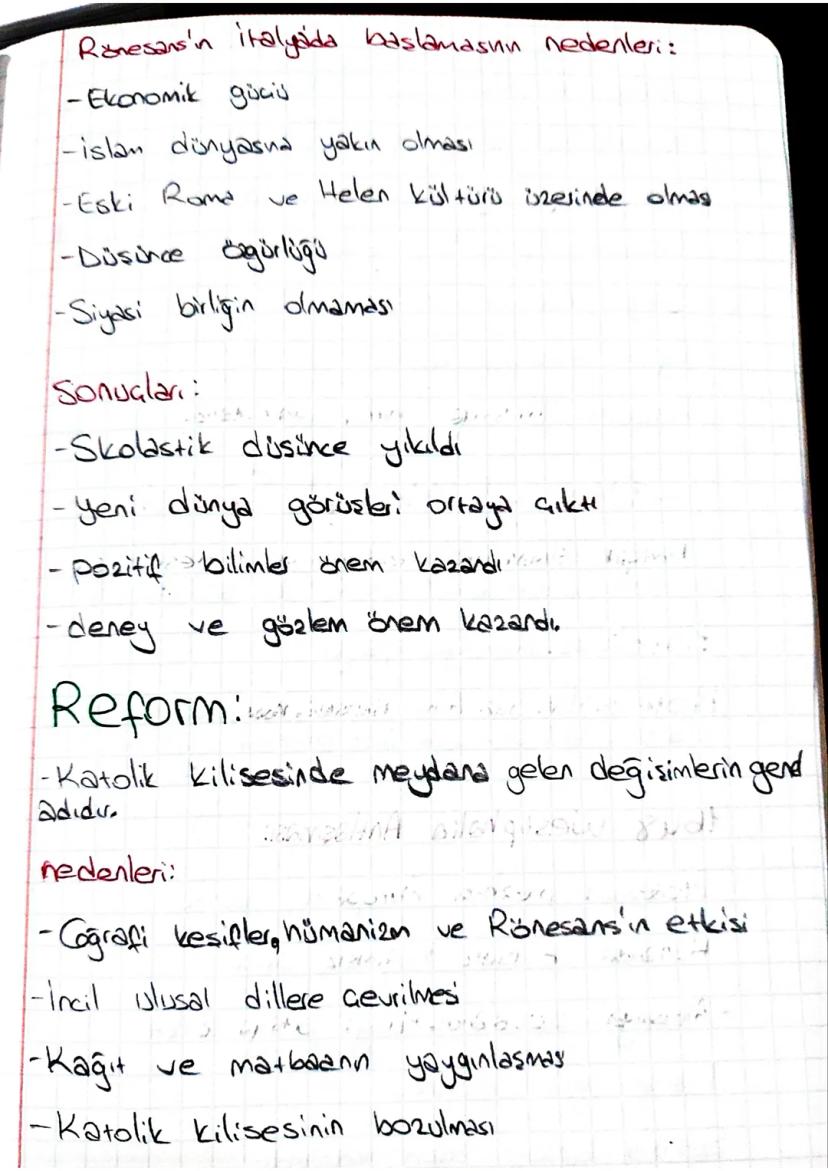 Rönesans'ın İtalya'da başlamasının nedenleri:
- Ekonomik gücü
- islam dünyasına yakın olması
- Eski Roma ve Helen kültürü üzerinde olması
- Düşünce özgürlüğü
- Siyasi birliğin olmaması
Sonuçları:
- Skolastik düşünce yıkıldı
- yeni dünya görüşleri ortaya çıktı
- pozitif bilimler önem kazandı
- deney ve gözlem önem kazandı.
Reform:
- Katolik kilisesinde meydana gelen değişimlerin genel
adıdır.
nedenleri:
- Coğrafi keşifler, hümanizm ve Rönesans'ın etkisi
- İncil ulusal dillere çevrilmesi
- Kağıt ve matbaanın yaygınlaşması
- Katolik kilisesinin bozulması